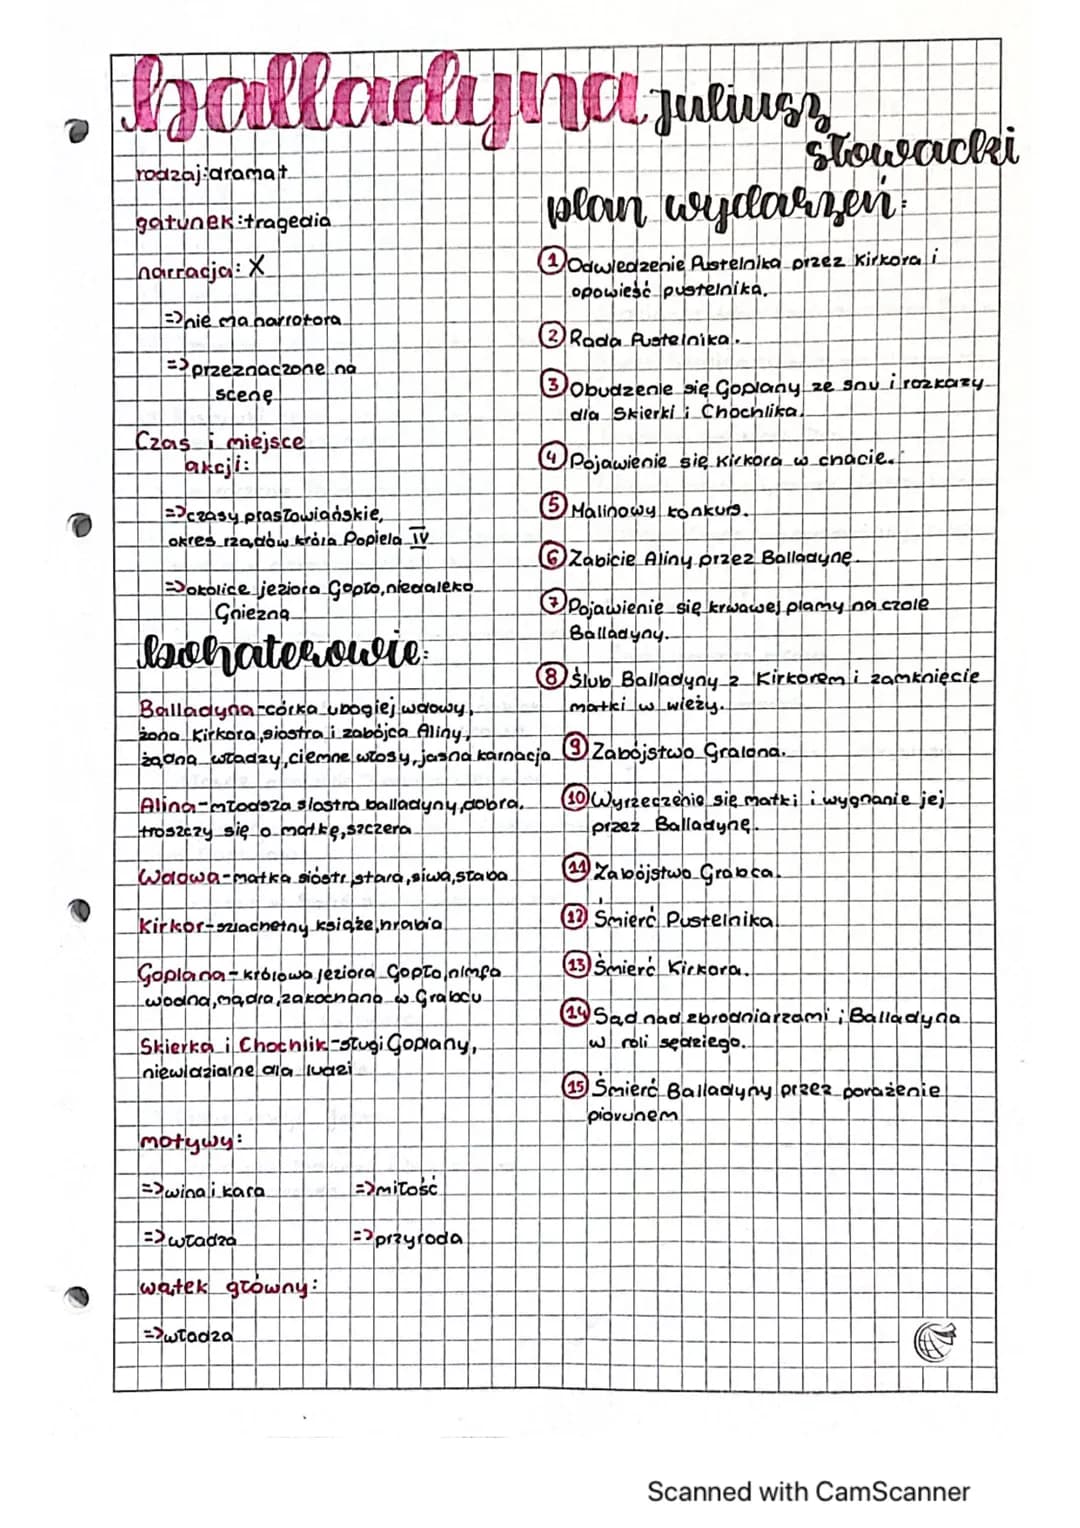 balladyna Juliusz
słowacki
rodzaj:dramat
gatunek:tragedia
narracja: X
=>nie ma narrotora
=>przeznaczone na
scenę
Czas i miejsce
akcji:
=>czasy prasłowiańskie,
okres rządów króla Popiela IV
=>okolice jeziora Gopło,niedaleko
Gniezna
bohaterowie:
Balladyna-córka ubogiej wdowy,
żona Kirkora,siostra i zabójca Aliny,
żądna władzy,ciemne włosy,jasna karnacja
Alina-młodsza siostra balladyny,dobra,
troszczy się o matkę,szczera
Wdowa-matka sióstr,stara,siwa,słaba
Kirkor-szlachetny książe,hrabia
Goplana-królowa jeziora Gopło,nimfa
wodna,mądra,zakochana w Grabcu
Skierka i Chochlik-sługi Goplany,
niewidzialne dla ludzi
motywy:
=>wina i kara =>miłość
=>władza =>przyroda
wątek główny:
=>władza
plan wydarzeń:
1 Odwiedzenie Pustelnika przez Kirkora i
opowieść pustelnika.
2 Rada Pustelnika.
3 Obudzenie się Goplany ze snu i rozkazy
dla Skierki i Chochlika.
4 Pojawienie się Kirkora w chacie.
5 Malinowy konkurs.
6 Zabicie Aliny przez Balladynę.
7 Pojawienie się krwawej plamy na czole
Balladyny.
8 Ślub Balladyny z Kirkorem i zamknięcie
matki w wieży.
9 Zabójstwo Gralona.
10 Wyrzeczenie się matki i wygnanie jej
przez Balladynę.
11 Zabójstwo Grabca.
12 Śmierć Pustelnika.
13 Śmierć Kirkora.
14 Sąd nad zbrodniarzami ; Balladyna
w roli sędziego.
15 Śmierć Balladyny przez porażenie
piorunem
Scanned with CamScanner